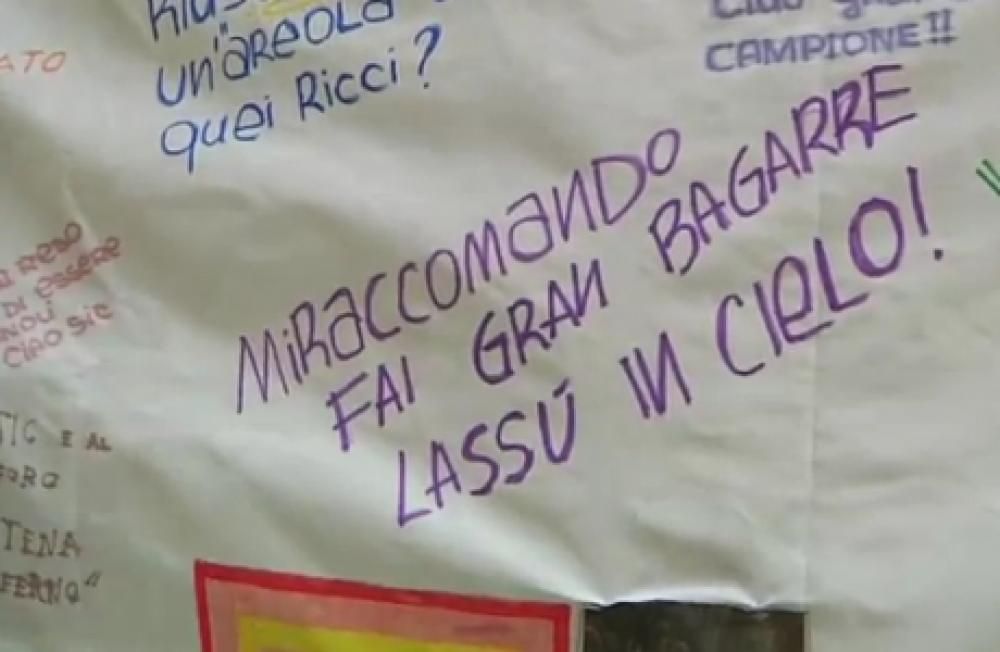 un'aREOLA
quei Ricci?
CAMPIONE!!
MiRaCCOMaNDO
FAI GRAN BAGARRE
LASSÚ IN CIELO!
ReSO
DI eSSeRe
NOI
CIAO SIC
TIC E AL
TENA